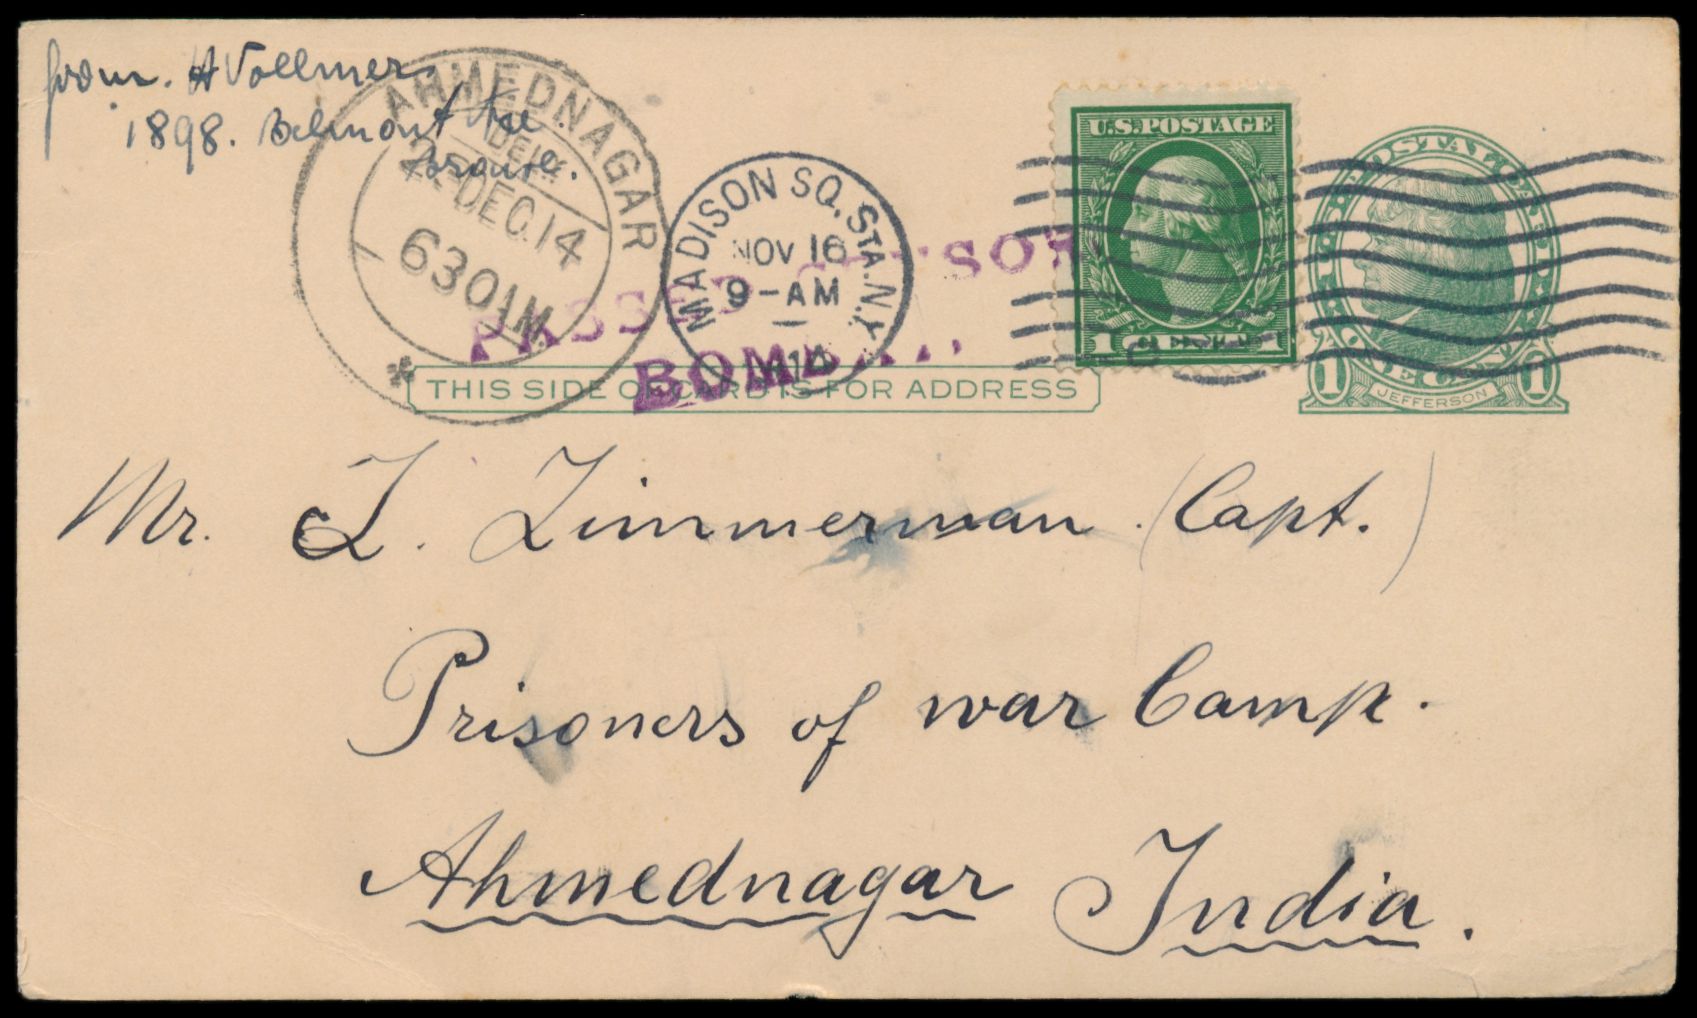 from. H Vollmer
1898. Belmont Ave.
Bronx.
AHMEDNAGAR
DELY.
DEC.14
630AM.
MADISON SQ. STA. N.Y.
NOV 16
9-AM
14
PASSED CENSOR
BOMBAY.
U.S.POSTAGE
1 CENT 1
U.S. POSTAL CARD
1 ONE CENT 1
JEFFERSON
THIS SIDE OF CARD IS FOR ADDRESS
Mr. L. Zimmerman (Capt.)
Prisoners of war Camp.
Ahmednagar India.